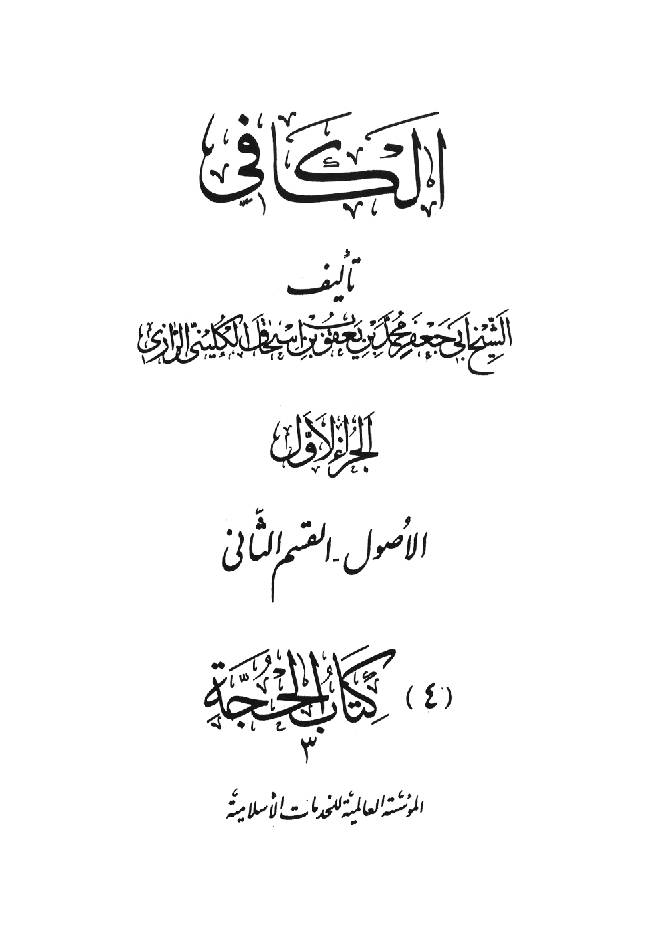 الكافي
تأليف
الشيخ أبي جعفر محمد بن يعقوب بن إسحاق الكليني الرازي
الجزء الأول
الأصول - القسم الثاني
(٤) كتاب الحجة
٣
المؤسسة العالمية للخدمات الأسلامية